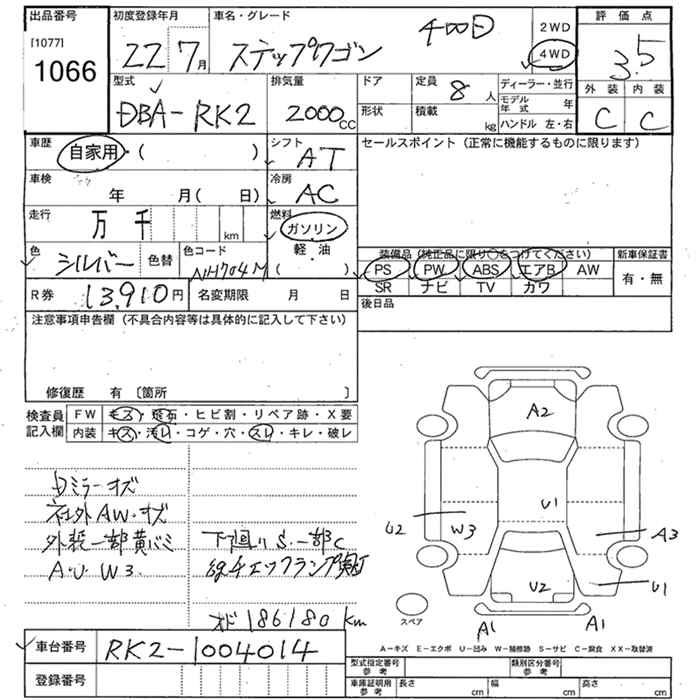 出品番号
[1077]
1066
初度登録年月
22 7月
車名・グレード
ステップワゴン
2WD
4WD
評価点
3.5
外装 内装
C C
型式
DBA-RK2
排気量
2000cc
ドア
形状
定員
8人
積載
kg
ディーラー・並行
モデル年式 年
ハンドル 左・右
車歴
自家用・( )
シフト
AT
セールスポイント(正常に機能するものに限ります)
車検
年 月( 日)
冷房
AC
走行
万 千 km
燃料
ガソリン
軽・油
( )
色
シルバー
色替
色コード
NH704M
装備品(純正品に限り○をつけてください)
新車保証書
PS PW ABS エアB AW
SR ナビ TV カワ
有・無
R券
13,910円
名変期限 月 日
後日品
注意事項申告欄(不具合内容等は具体的に記入して下さい)
修復歴 有〔箇所 〕
検査員記入欄
FW キズ・飛石・ヒビ割・リペア跡・X要
内装 キズ・汚レ・コゲ・穴・スレ・キレ・破レ
ミラーキズ
社外AW・キズ
外装一部黄バミ
A・U W3
下回り S・一部C
チェックランプ
186180 km
A2
U1
U2
W3
A3
U2
U1
A1
A1
スペア
A-キズ E-エクボ U-凹み W-補修跡 S-サビ C-腐食 XX-取替済
車台番号
RK2-1004014
登録番号
型式指定番号
参考
類別区分番号
参考
車庫証明用
参考
長さ cm
幅 cm
高さ cm